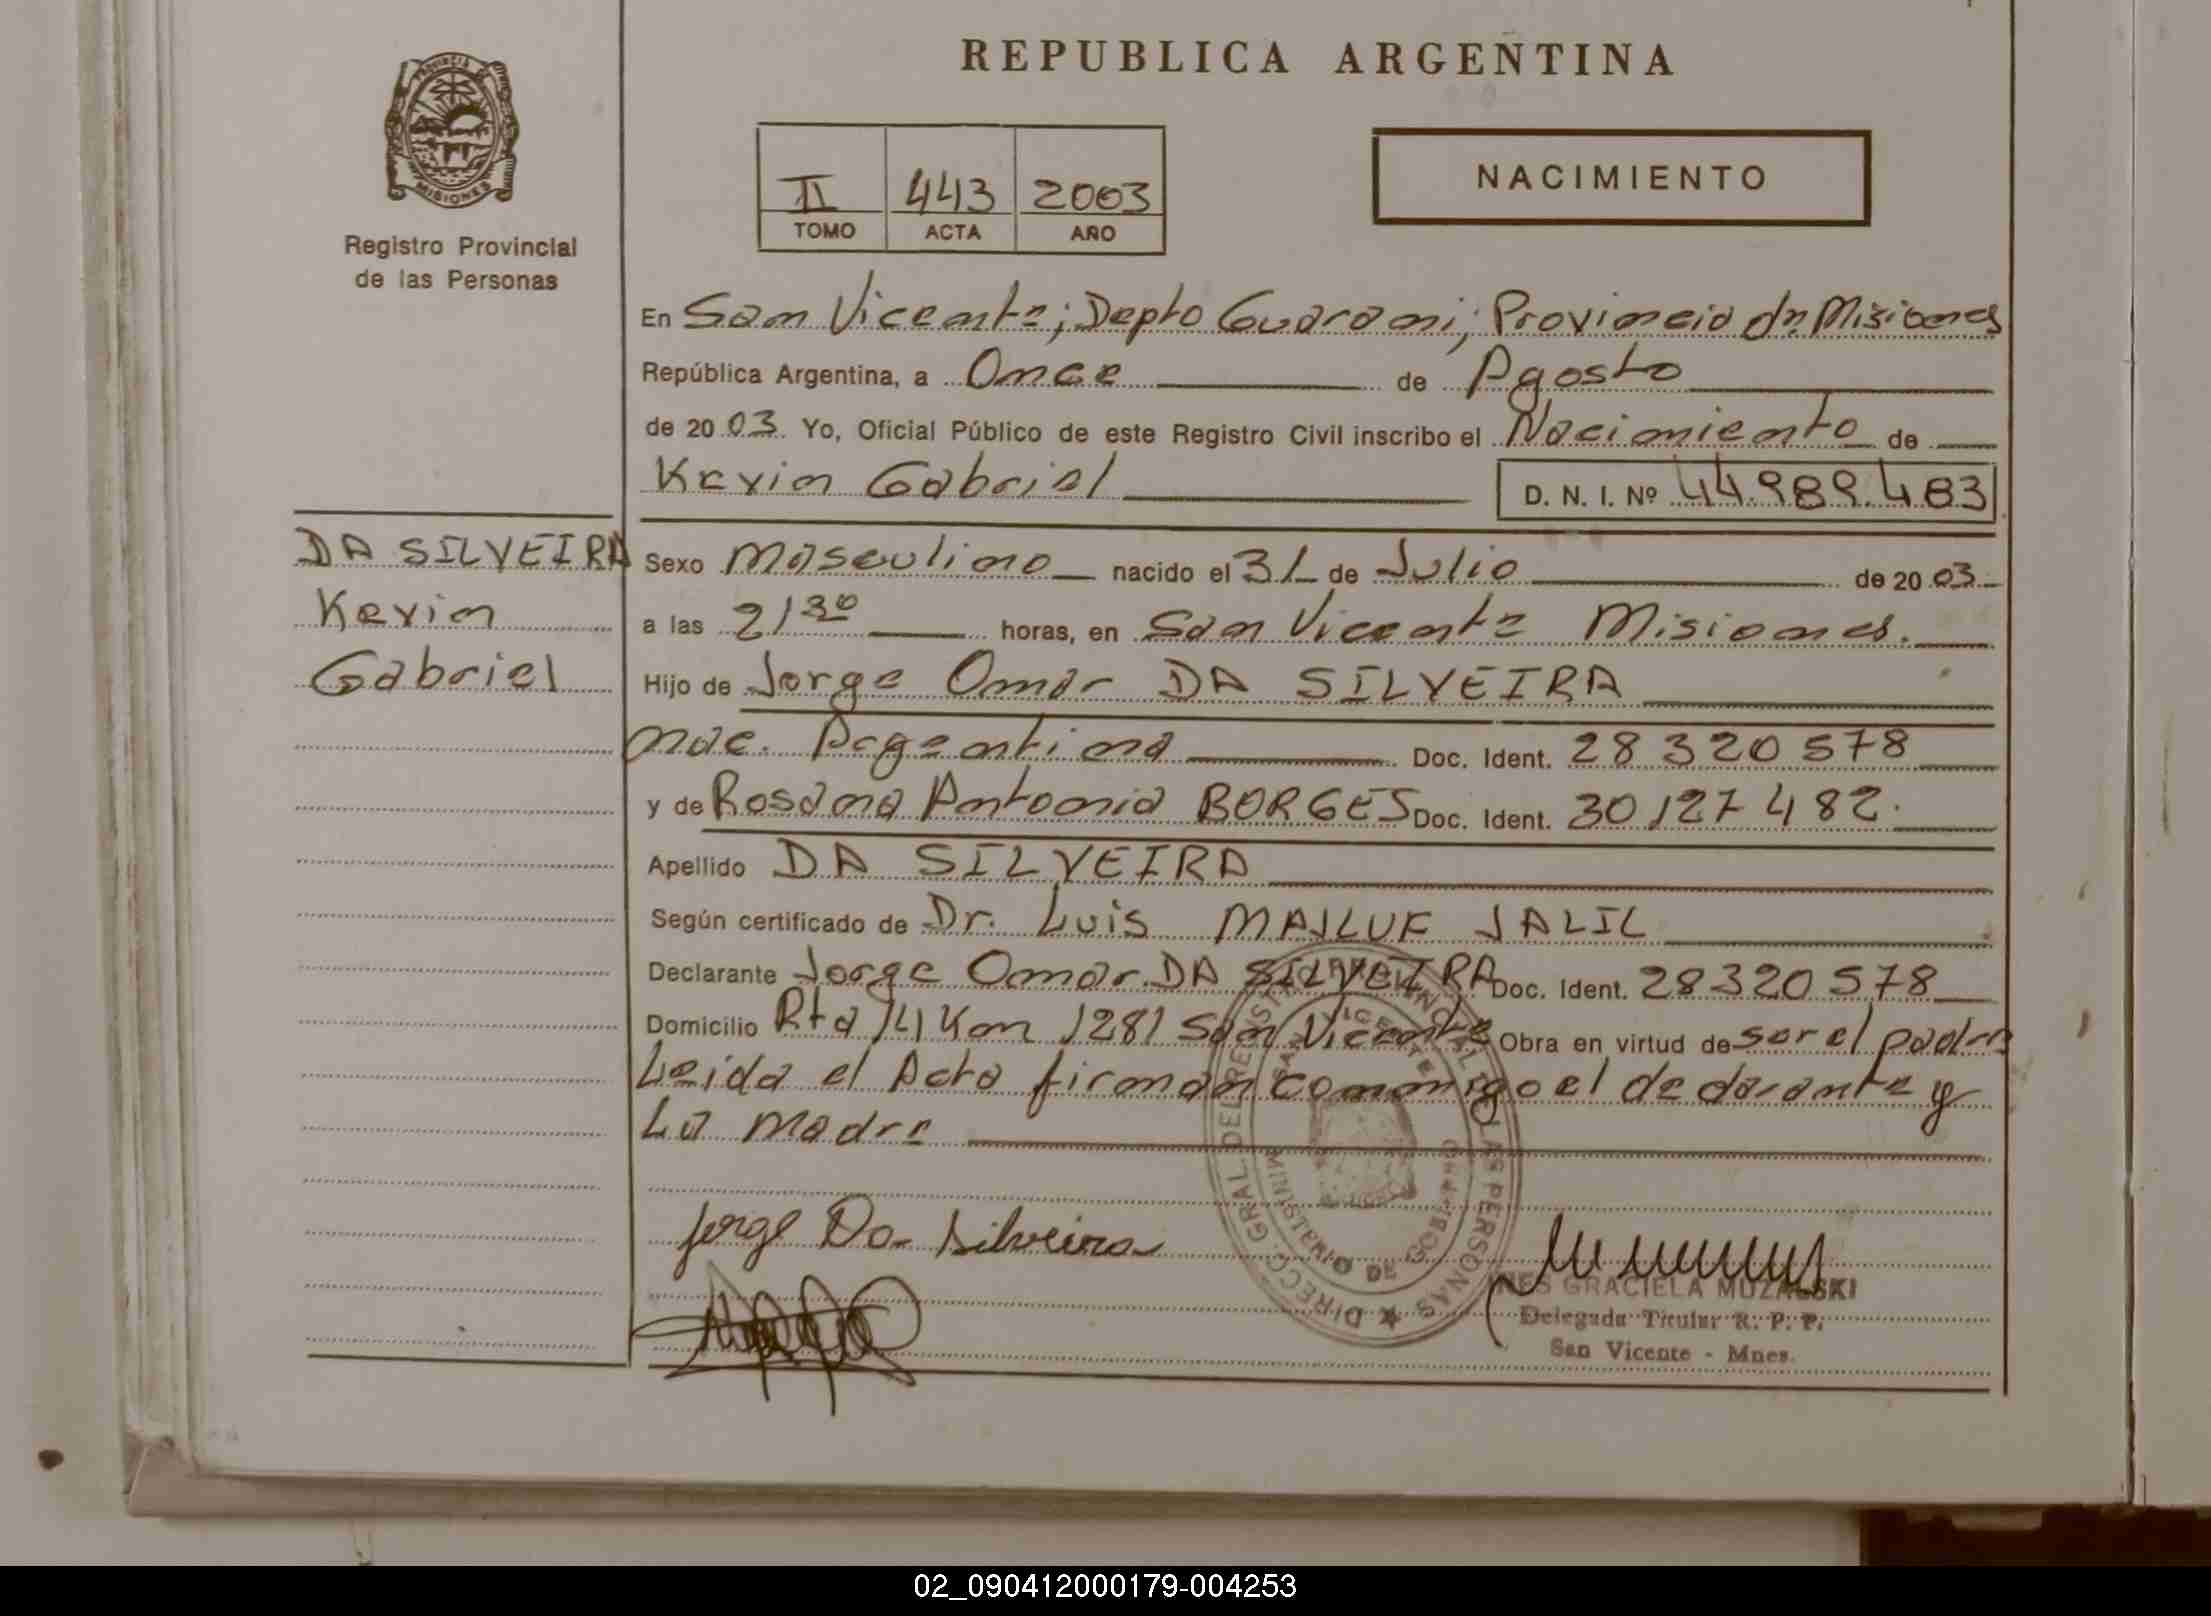 REPUBLICA ARGENTINA
PROVINCIA DE
MISIONES
Registro Provincial
de las Personas
II 443 2003
TOMO ACTA AÑO
NACIMIENTO
En San Vicente; Depto Guarani; Provincia de Misiones
República Argentina, a Once de Agosto
de 2003. Yo, Oficial Público de este Registro Civil inscribo el Nacimiento de
Kevin Gabriel D. N. I. Nº 44.989.483
DA SILVEIRA
Kevin
Gabriel
Sexo Masculino nacido el 31 de Julio de 2003
a las 21 30 horas, en San Vicente Misiones.
Hijo de Jorge Omar DA SILVEIRA
nac. Argentina Doc. Ident. 28 320 578
y de Rosana Antonia BORGES Doc. Ident. 30 127 482.
Apellido DA SILVEIRA
Según certificado de Dr. Luis MAJLUF JALIL
Declarante Jorge Omar DA SILVEIRA Doc. Ident. 28320 578
Domicilio Rta 14 Km 1281 San Vicente Obra en virtud de ser el padre
Leida el Acta firman conmigo el declarante y
La Madre
DIRECC. GRAL DEL REGISTRO PROVINCIAL DE LAS PERSONAS
SAN VICENTE
MINISTERIO DE GOBIERNO
Jorge Da Silveira
INES GRACIELA MUZALSKI
Delegada Titular R. P. P.
San Vicente - Mnes.
02_090412000179-004253